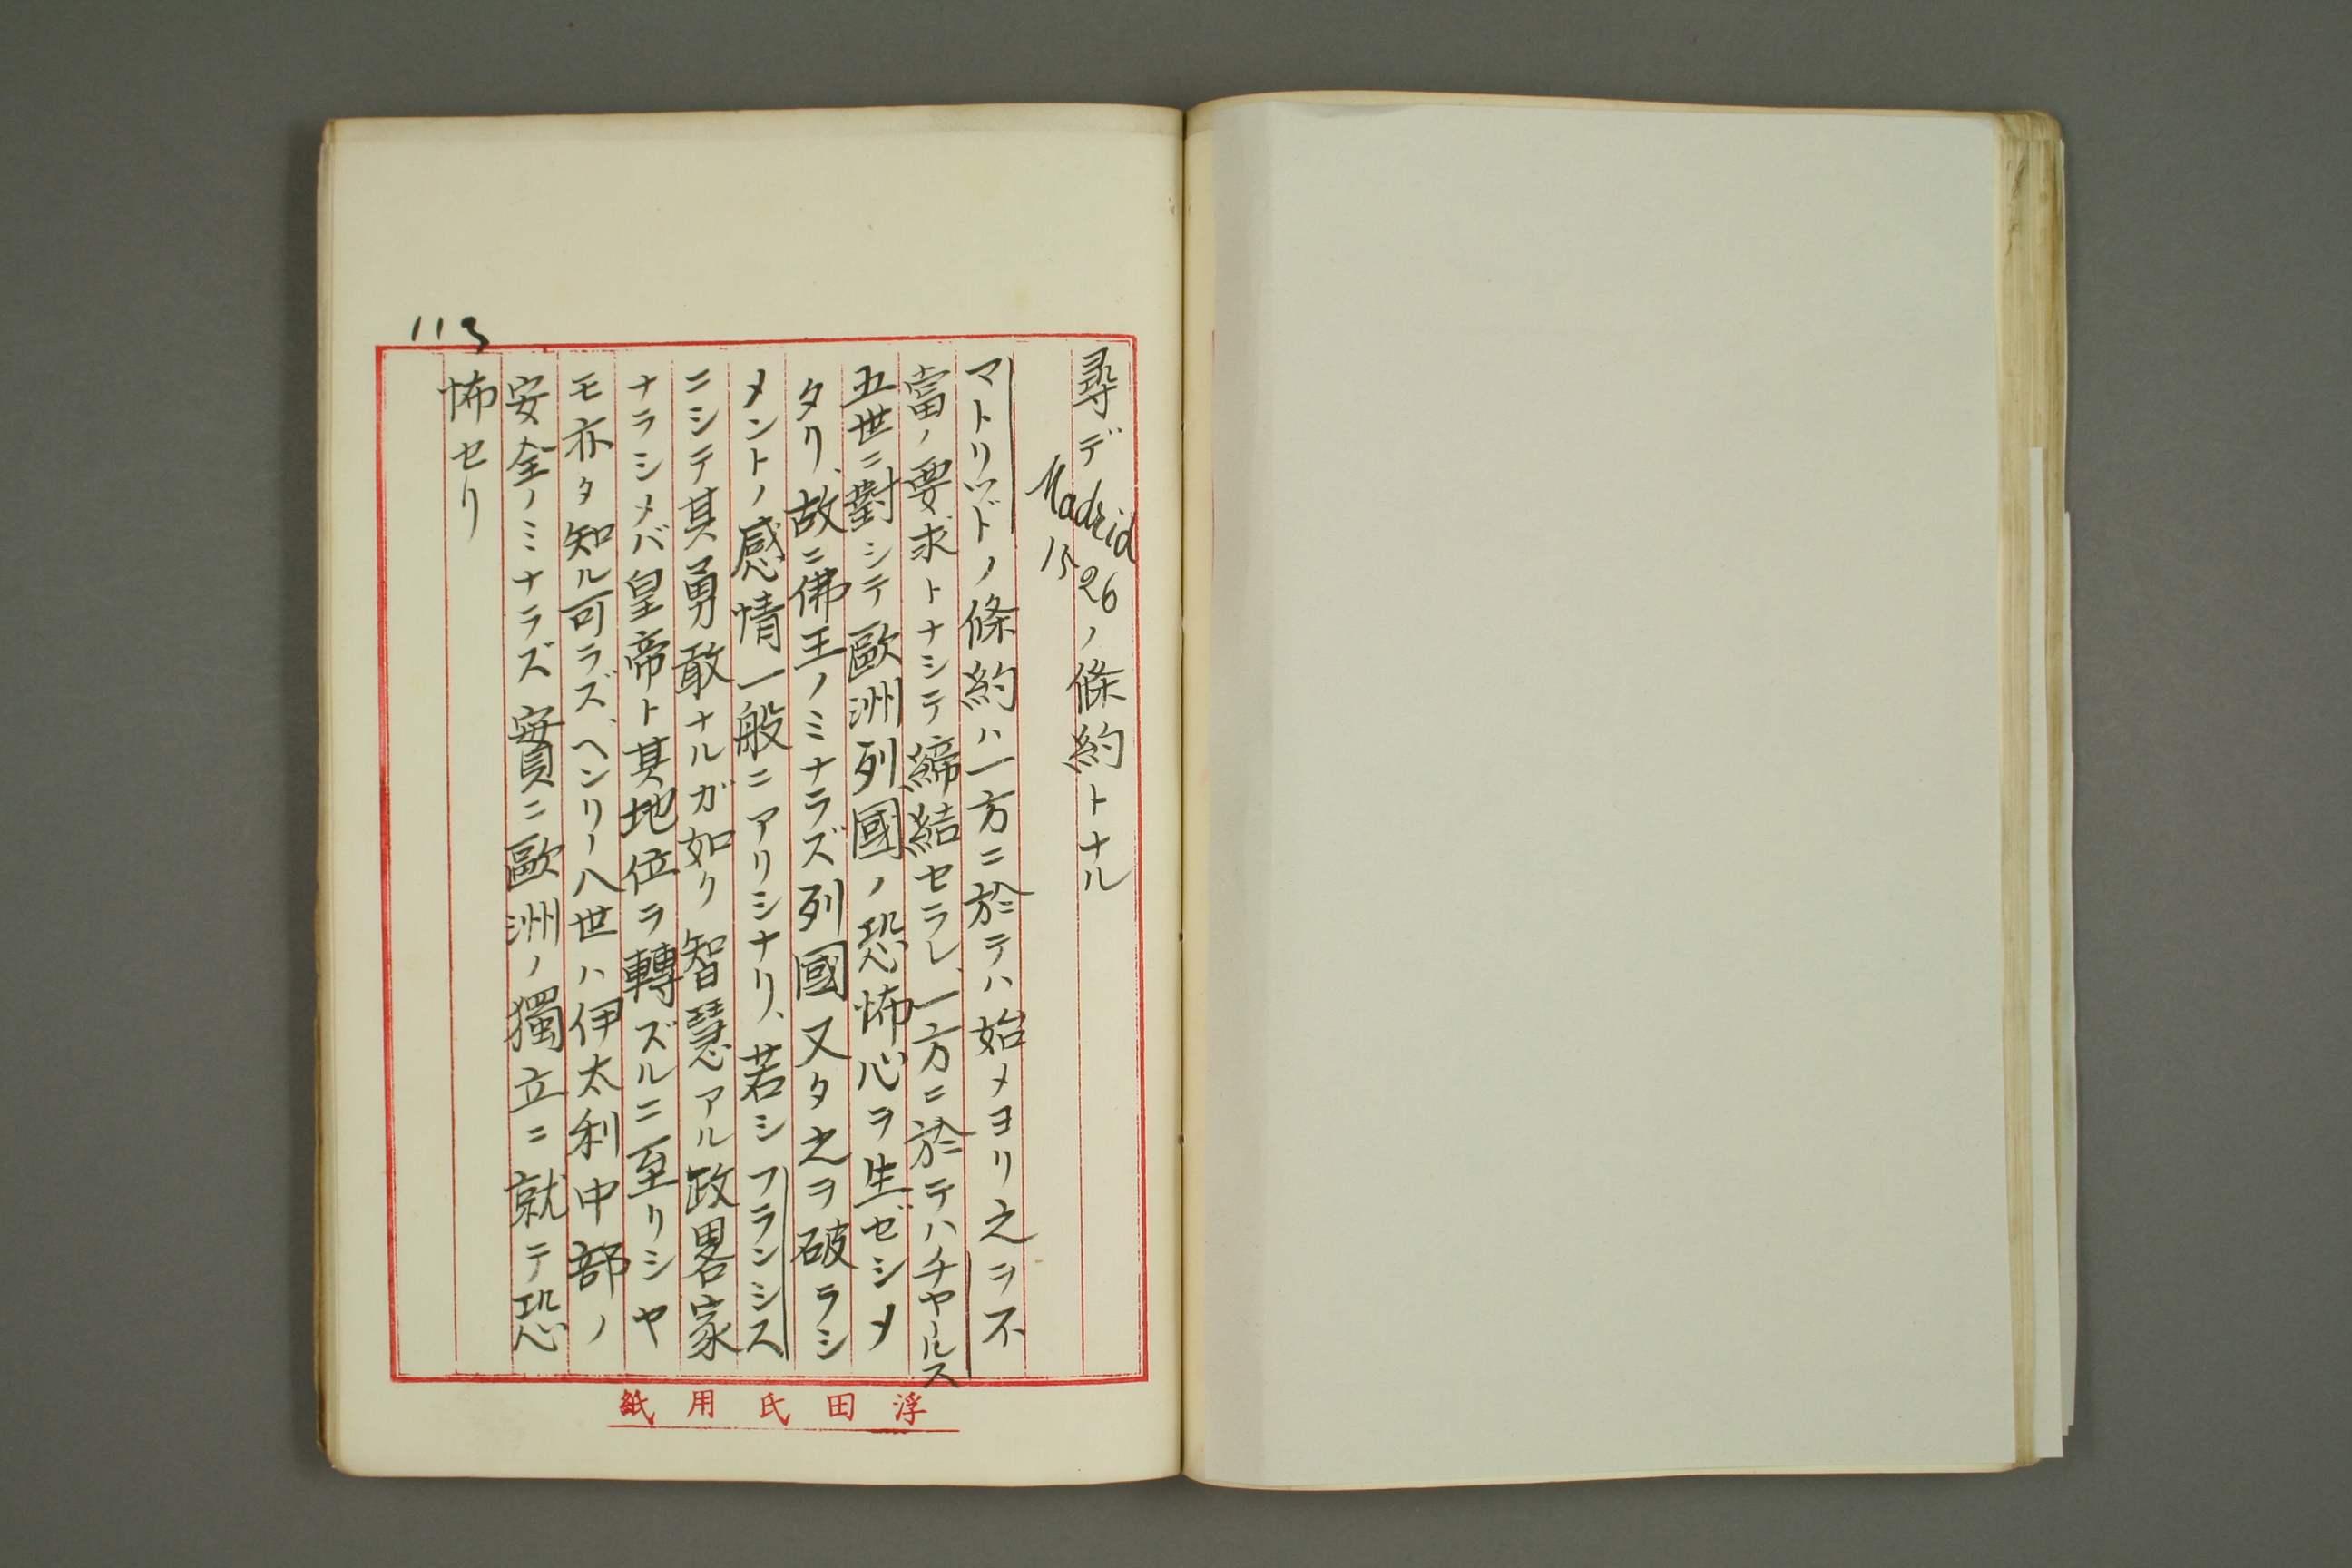 113
尋デ Madrid 1526ノ條約トナル
マトリッドノ條約ハ一方ニ於テハ始メヨリ之ヲ不
當ノ要求トナシテ締結セラレ、一方ニ於テハチャールス
五世ニ對シテ歐洲列國ノ恐怖心ヲ生ゼシメ
タリ、故ニ佛王ノミナラズ列國又タ之ヲ破ラシ
メントノ感情一般ニアリシナリ、若シフランシス
ニシテ其勇敢ナルガ如ク智慧アル政畧家
ナラシメバ皇帝ト其地位ヲ轉ズルニ至リシヤ
モ亦タ知ル可ラズ、ヘンリー八世ハ伊太利中部ノ
安全ノミナラズ實ニ歐洲ノ獨立ニ就テ恐
怖セリ
浮田氏用紙